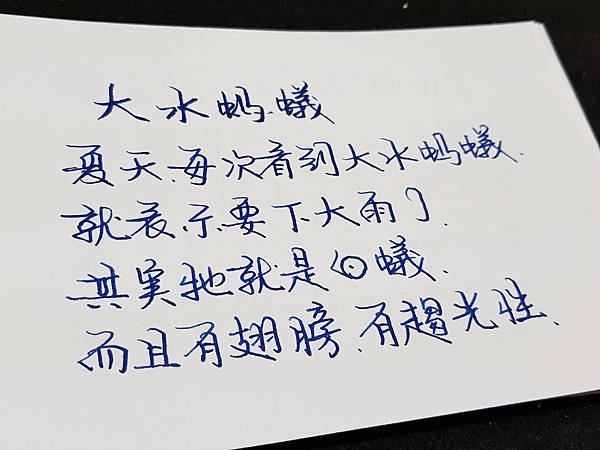 大水蚂蟻
夏天、每次看到大水蚂蟻、
就表示要下大雨了、
其实牠就是白蟻、
而且有翅膀、有趨光性、